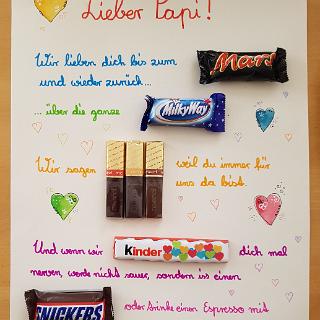 Lieber Papi!
Wir lieben dich bis zum Mars
und wieder zurück...
... über die ganze MilkyWay
Wir sagen weil du immer für
uns da bist.
Und wenn wir Kinder dich mal
nerven, werde nicht sauer, sondern iss einen
SNICKERS oder trinke einen Espresso mit